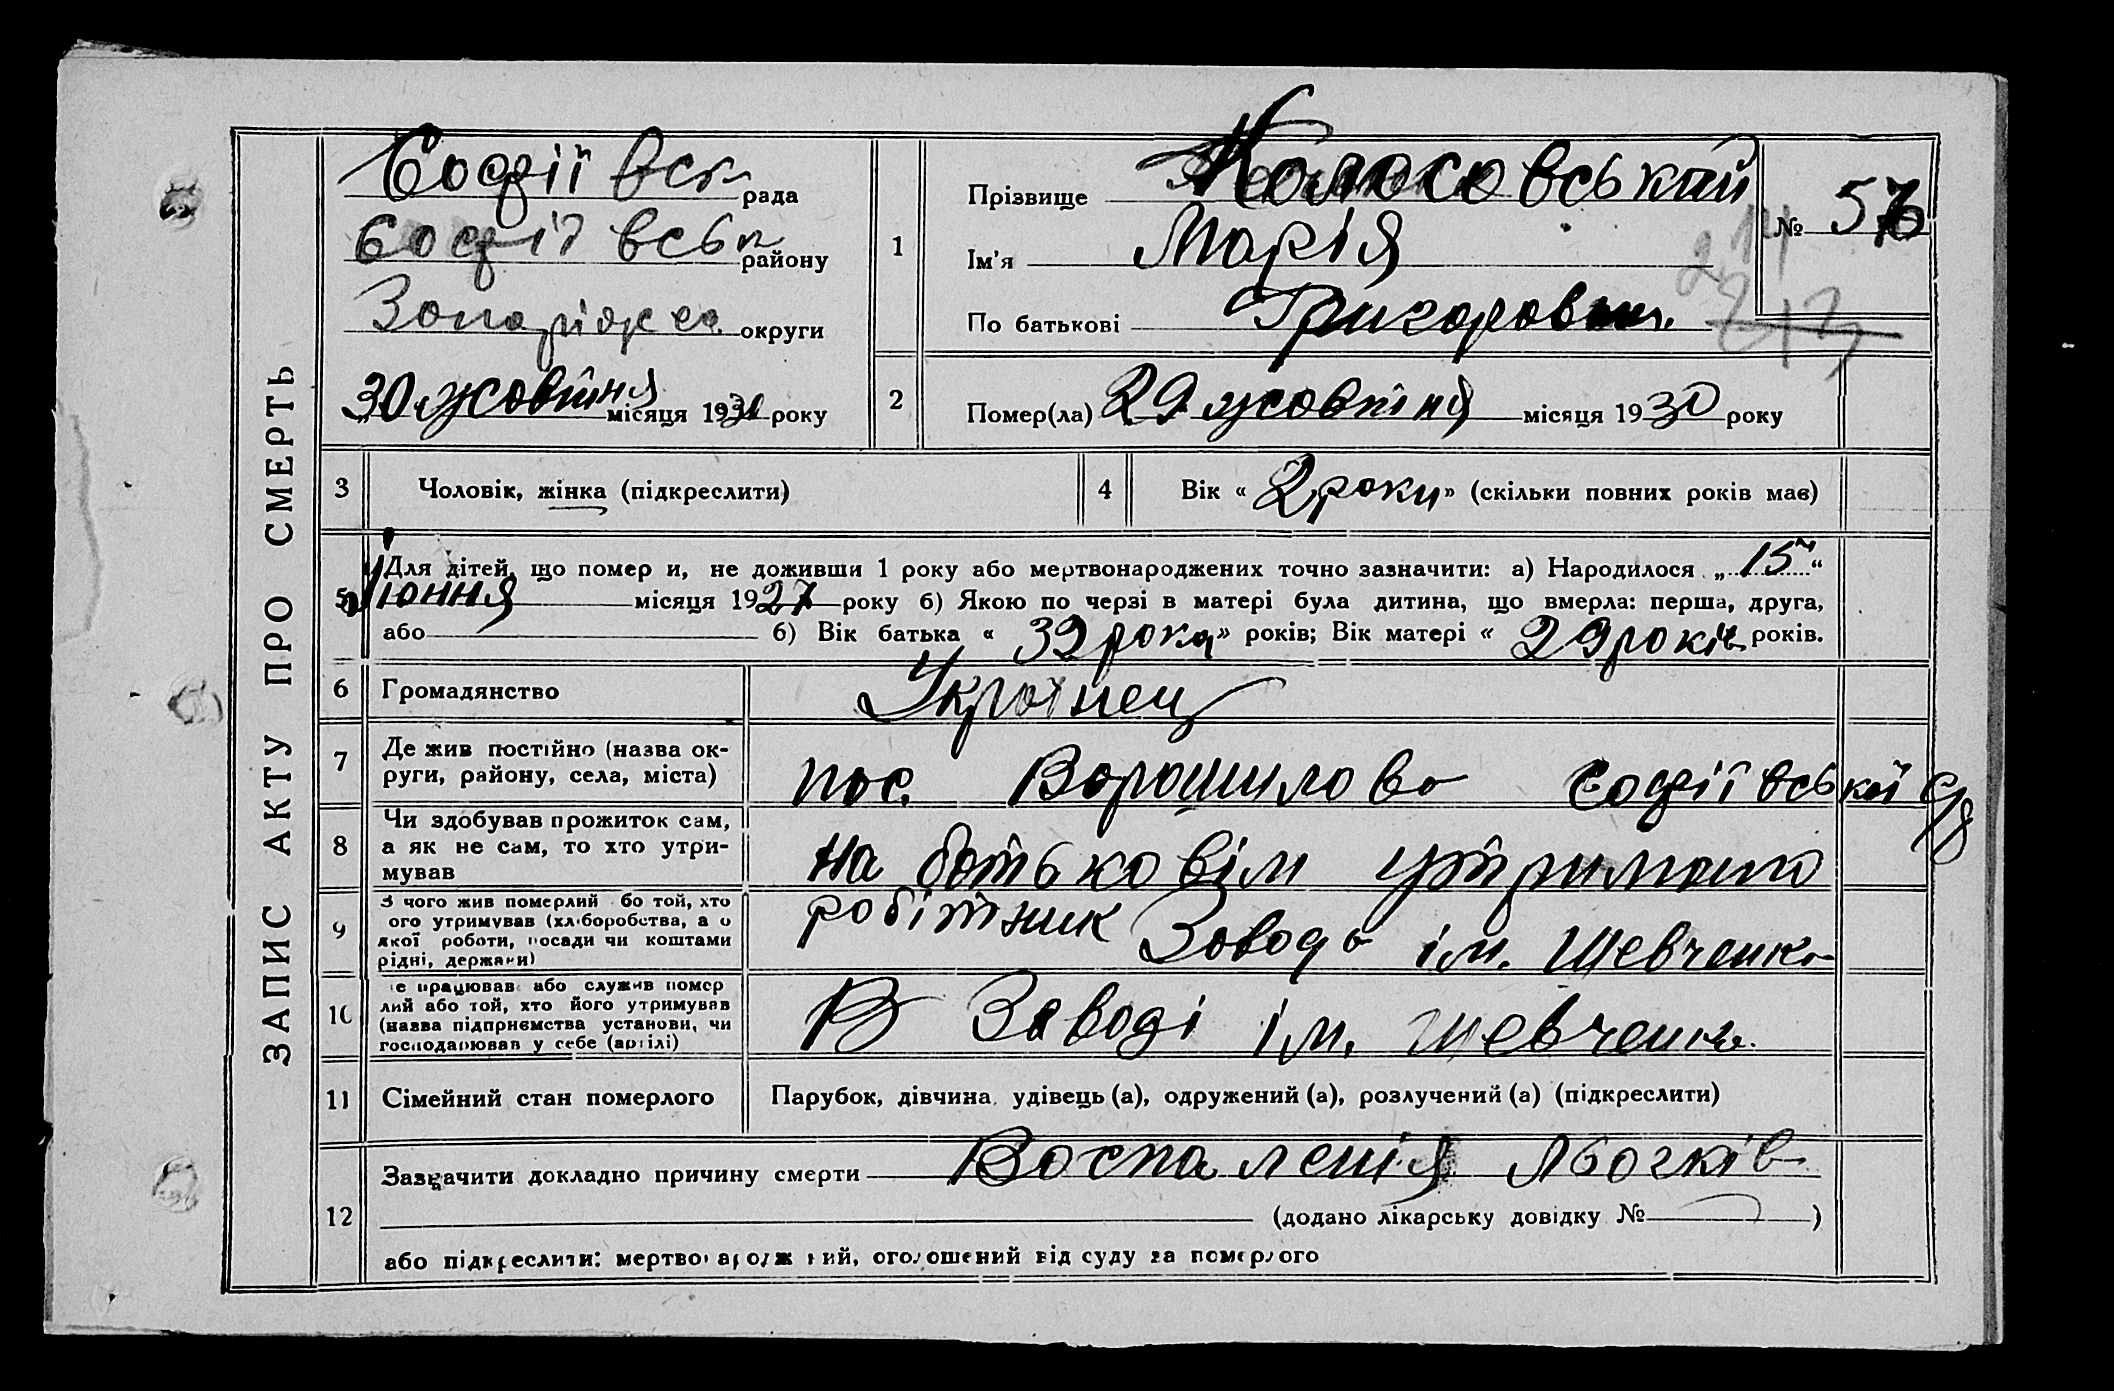 ЗАПИС АКТУ ПРО СМЕРТЬ
Софіївськ рада
Софіївськ району
Запоріжка округи
„30 жовтня місяця 1930 року
1
Прізвище Колосовський
Ім'я Марія
По батькові Григоровн.
№ 576
214
2
Помер(ла) 29 жовтня місяця 1930 року
3 Чоловік, жінка (підкреслити)
4 Вік « 2 роки » (скільки повних років має)
5
Для дітей, що помер и, не доживши 1 року або мертвонароджених точно зазначити: а) Народилося „ 15 “
Іюння місяця 1927 року б) Якою по черзі в матері була дитина, що вмерла: перша, друга,
або б) Вік батька « 32 рока » років; Вік матері « 29 років років.
6 Громадянство Украінец
7 Де жив постійно (назва ок-
руги, району, села, міста)
пос. Ворошилово Софіївській
8 Чи здобував прожиток сам,
а як не сам, то хто утри-
мував
на батьковім утриманю
9 З чого жив померлий бо той, хто
ого утримував (хліборобства, а о
якої роботи, посади чи коштами
рідні, держави)
робітник Завода ім. Шевченка
10 е працював або служив помер
лий або той, хто його утримував
(назва підприємства установи, чи
господарював у себе (артілі)
В Заводі ім. Шевченка.
11 Сімейний стан померлого Парубок, дівчина, удівець (а), одружений (а), розлучений (а) (підкреслити)
12
Зазначити докладно причину смерти Воспаленія лбогків
(додано лікарську довідку № )
або підкреслити: мертвонароджений, оголошений від суду за померлого